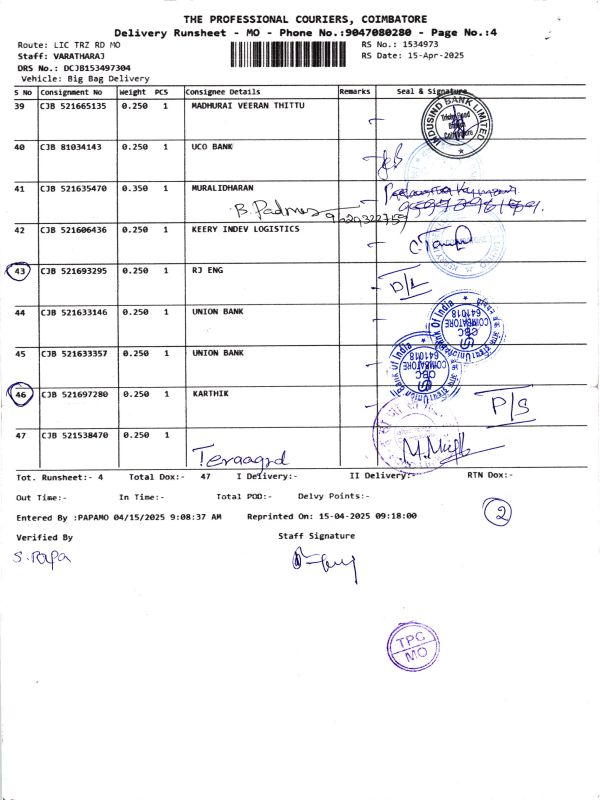 THE PROFESSIONAL COURIERS, COIMBATORE
Delivery Runsheet - MO - Phone No.:9047080280 - Page No.:4
Route: LIC TRZ RD MO RS No.: 1534973
Staff: VARATHARAJ RS Date: 15-Apr-2025
DRS No.: DCJB153497304
Vehicle: Big Bag Delivery
S No Consignment No Weight PCS Consignee Details Remarks Seal & Signature
39 CJB 521665135 0.250 1 MADHURAI VEERAN THITTU
INDUSIND BANK LIMITED
40 CJB 81034143 0.250 1 UCO BANK
41 CJB 521635470 0.350 1 MURALIDHARAN
B. Padma
42 CJB 521606436 0.250 1 KEERY INDEV LOGISTICS
43 CJB 521693295 0.250 1 RJ ENG
D/L
44 CJB 521633146 0.250 1 UNION BANK
Union Bank Of India
CBC
COIMBATORE
641018
45 CJB 521633357 0.250 1 UNION BANK
Union Bank Of India
CBC
COIMBATORE
641018
46 CJB 521697280 0.250 1 KARTHIK
P/S
47 CJB 521538470 0.250 1
Tot. Runsheet:- 4 Total Dox:- 47 I Delivery:- II Delivery:- RTN Dox:-
Out Time:- In Time:- Total POD:- Delvy Points:-
Entered By :PAPAMO 04/15/2025 9:08:37 AM Reprinted On: 15-04-2025 09:18:00
2
Verified By Staff Signature
S. Papa
TPC
MO